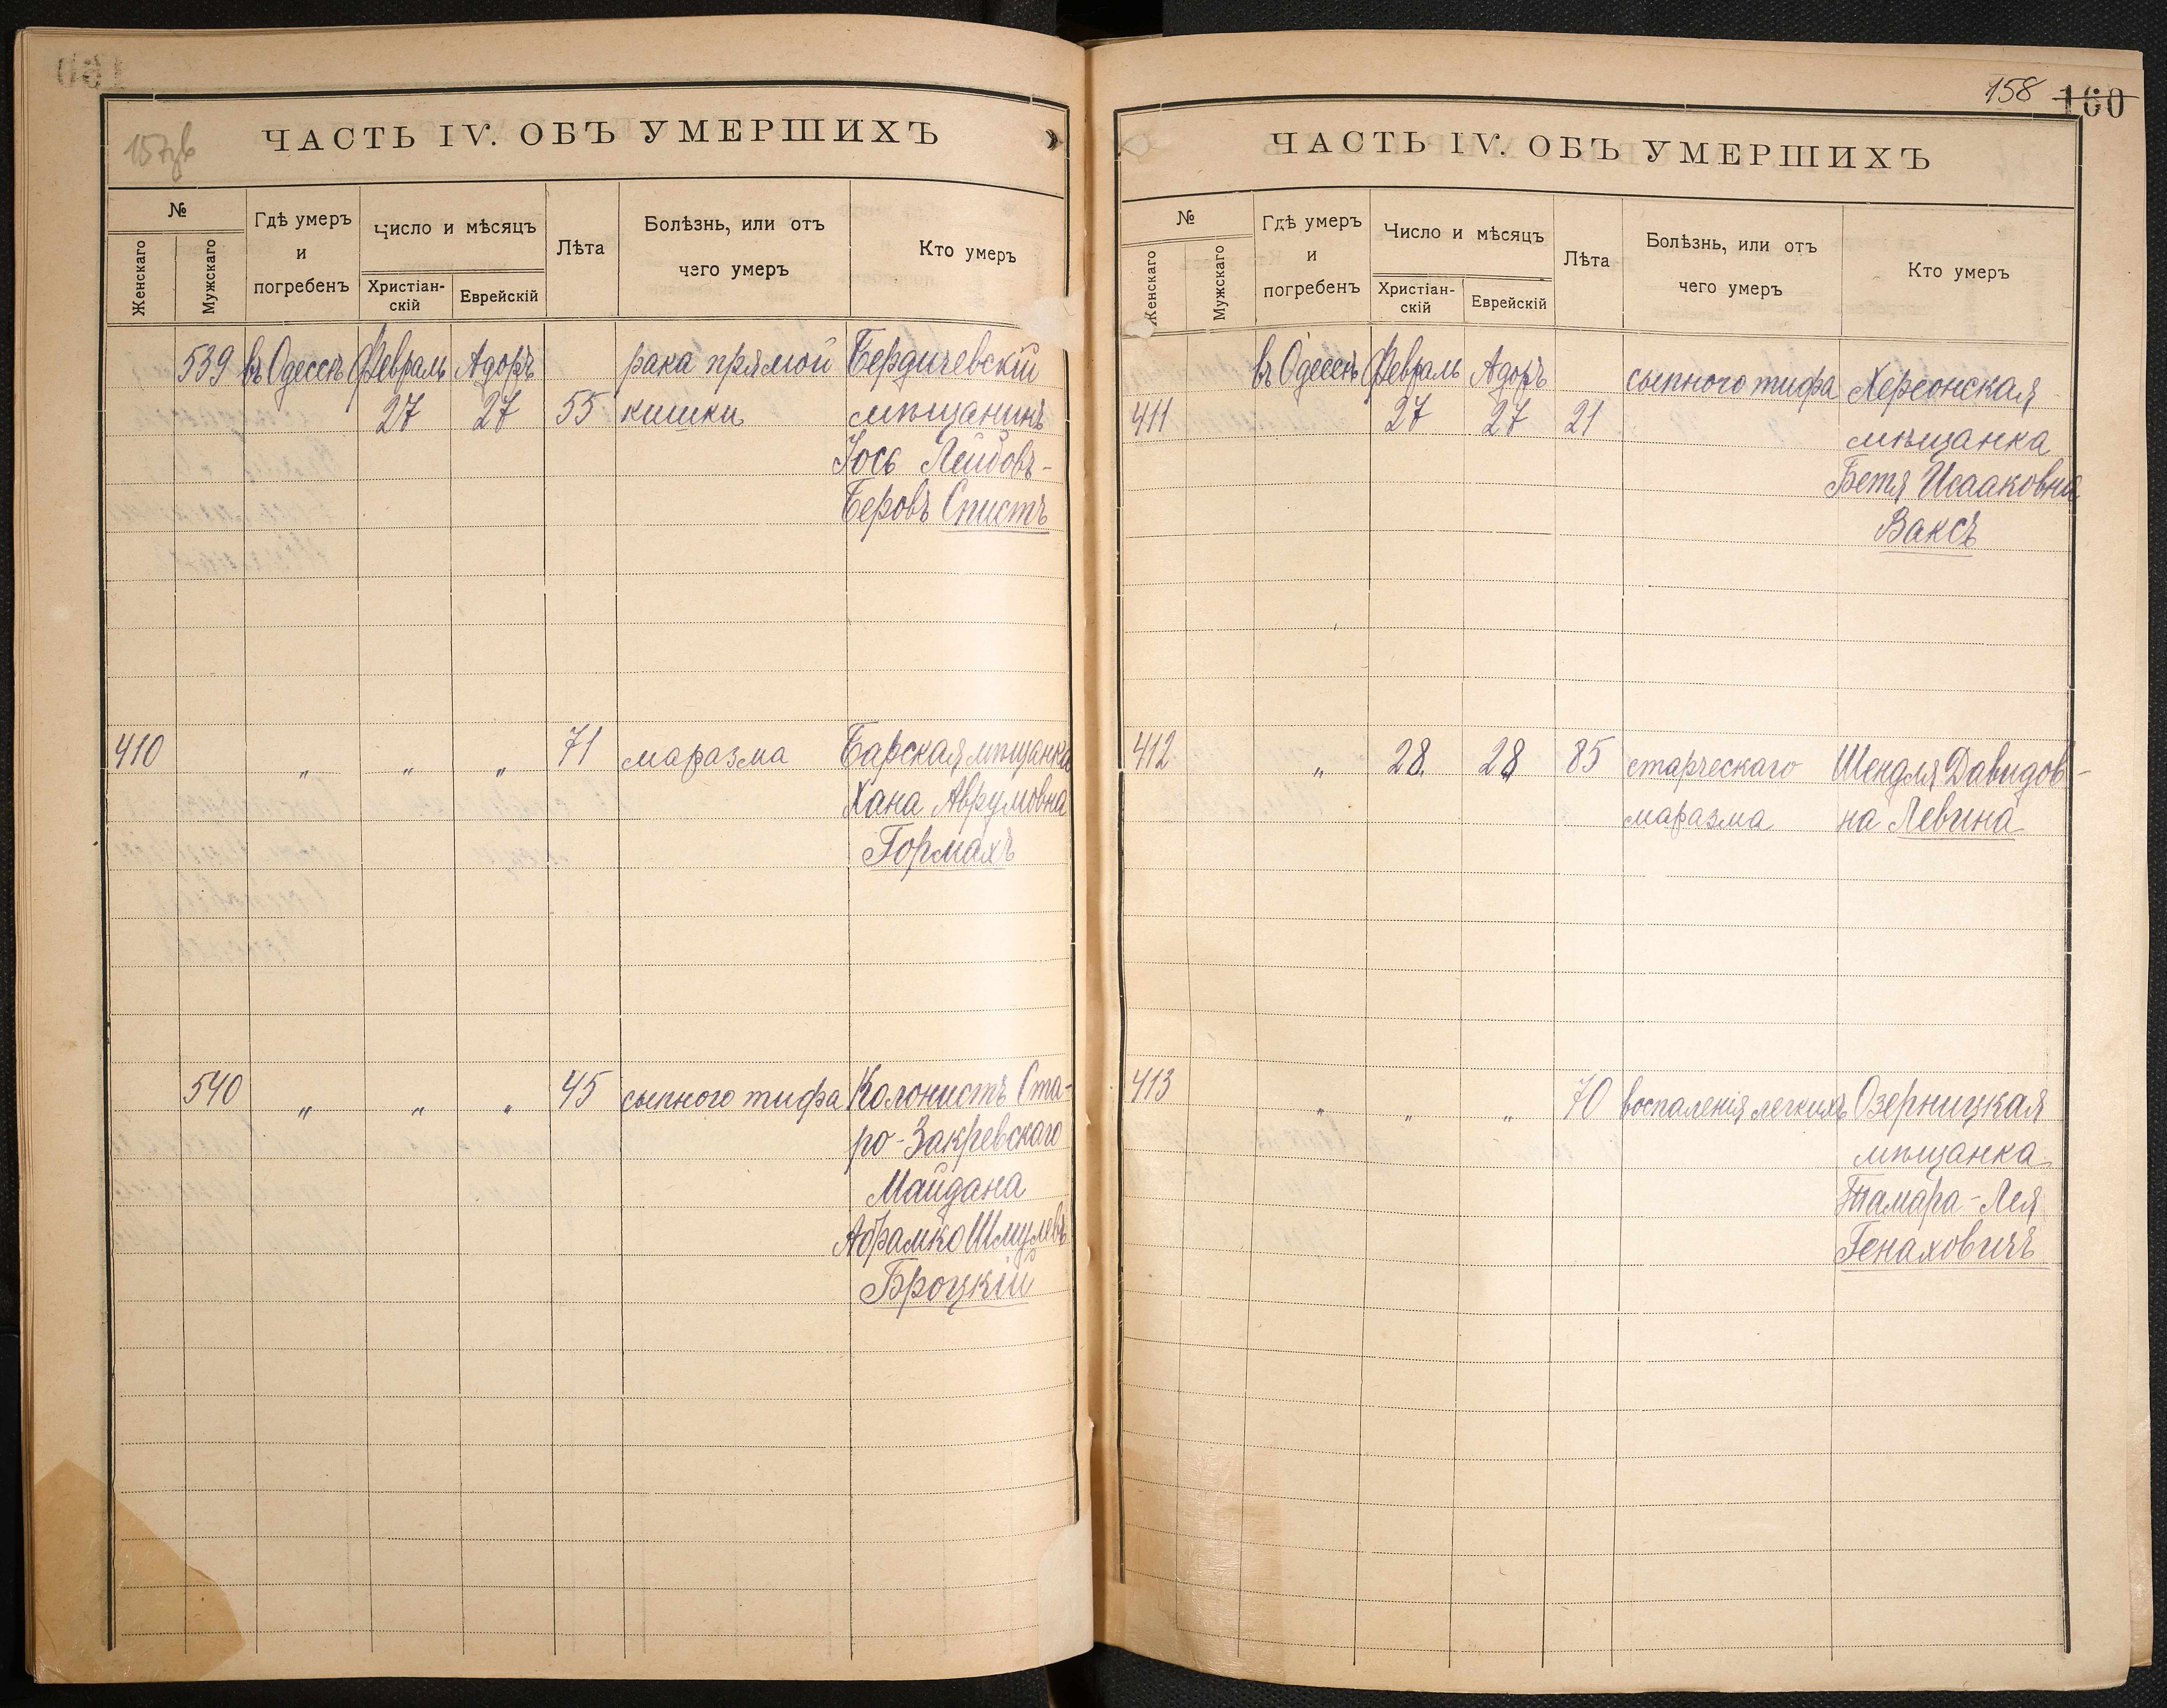 157зв
ЧАСТЬ IV. ОБЪ УМЕРШИХЪ
№
Женскаго
Мужскаго
Гдѣ умеръ
и
погребенъ
Число и мѣсяцъ
Христіан-
скій
Еврейскій
Лѣта
Болѣзнь, или отъ
чего умеръ
Кто умеръ
539 въ Одессѣ Февраль Адоръ рака прямой Бердичевскій
27 27 55 кишки мѣщанинъ
Іось Лейбовъ-
Беровъ Спистъ
410 „ „ „ 71 маразма Барская мѣщанка
Хана Аврумовна
Гормахъ
540 „ „ „ 45 сыпного тифа Колонистъ Ста-
ро-Закревскаго
Майдана
Абрамко Шмулевъ
Броцкій
158 160
ЧАСТЬ IV. ОБЪ УМЕРШИХЪ
№
Женскаго
Мужскаго
Гдѣ умеръ
и
погребенъ
Число и мѣсяцъ
Христіан-
скій
Еврейскій
Лѣта
Болѣзнь, или отъ
чего умеръ
Кто умеръ
въ Одессѣ Февраль Адоръ сыпного тифа Херсонская
411 27 27 21 мѣщанка
Бетя Исааковна
Ваксъ
412 „ 28. 28 85 старческаго Шендля Давидов-
маразма на Левина
413 „ „ „ 70 воспаленія легкихъ Озерницкая
мѣщанка
Тамара-Лея
Генаховичъ